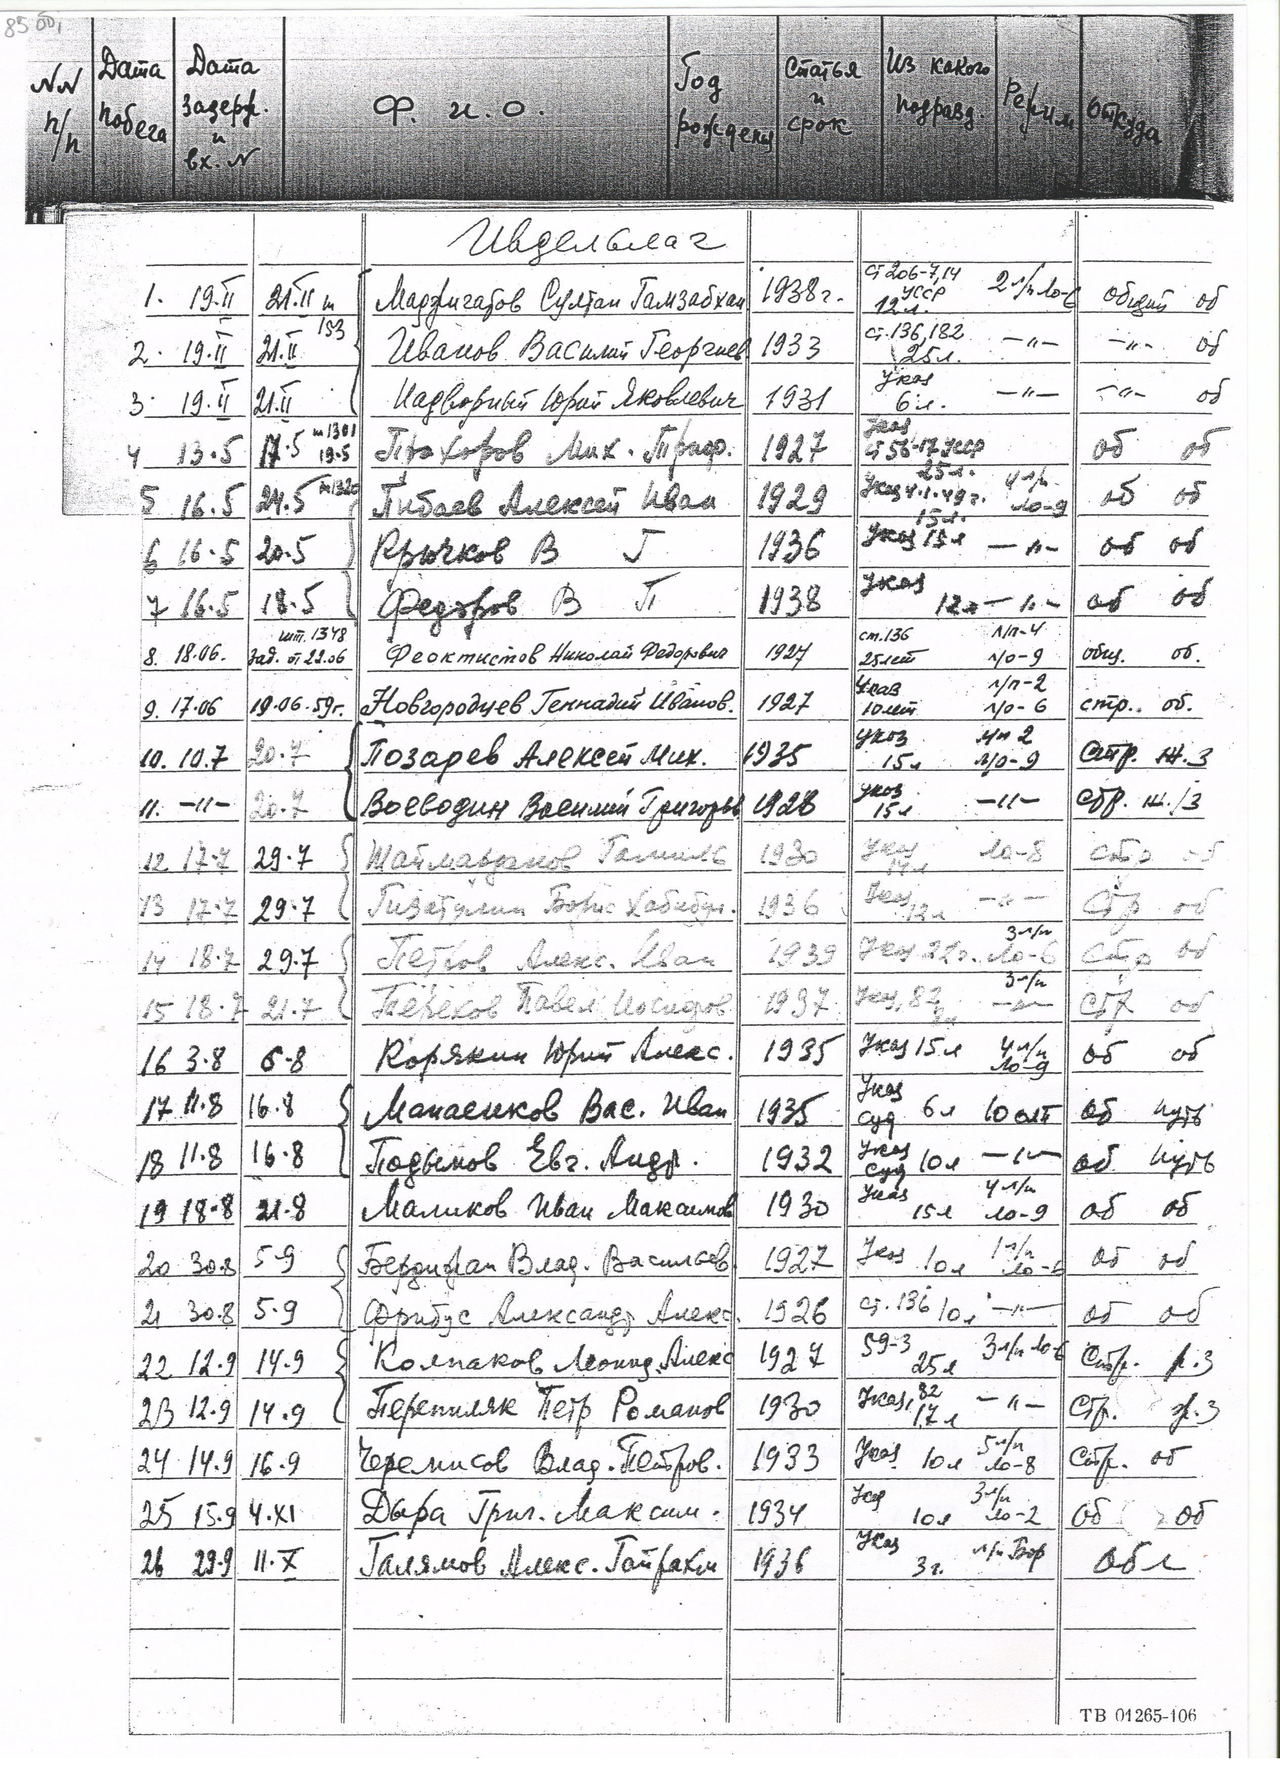 85 об,
NN п/п | Дата побега | Дата задерж. и вх. N | Ф. и. о. | Год рождения | Статья и срок | Из какого подразд. | Режим | Откуда
Ивдельлаг
1. 19.II 21.II т 153 Маджигатов Султан Гамзабхан 1938 г. ст 206-7,14 УССР 12 л. 2 л/п ло-6 общий об
2. 19.II 21.II Иванов Василий Георгиев 1933 ст. 136, 182 25 л. —"— —"— об
3. 19.II 21.II Надворный Юрий Яковлевич 1931 Указ 6 л. —"— —"— об
4 13.5 17.5 т 1301 19.5 Прохоров Мих. Траф. 1927 Указ ст 56-17 УССР 25 л. об об
5 16.5 24.5 т 1320 Пибаев Алексей Иван 1929 Указ 4.1.49 г. 15 л. 4 л/п ло-9 об об
6 16.5 20.5 Крючков В Г 1936 Указ 15 л —"— об об
7 16.5 18.5 Федоров В П 1938 Указ 12 л —"— об об
8. 18.06. шт. 1348 Зад. от 22.06 Феоктистов Николай Федорович 1927 ст. 136 25 лет л/п-4 л/о-9 общ. об.
9. 17.06 19.06.59 г. Новгородцев Геннадий Иванов. 1927 Указ 10 лет л/п-2 л/о-6 стр. об.
10. 10.7 20.7 Позарев Алексей Мих. 1935 Указ 15 л л/п 2 л/о-9 Стр. ж.з
11. —"— 20.7 Воеводин Василий Григорьев 1928 Указ 15 л —"— Стр. ж./з
12 17.7 29.7 Шаймарданов Гамиль 1930 Указ 14 л ло-8 Стр об
13 17.7 29.7 Гизатулин Борис Хабибул. 1936 Указ 12 л —"— Стр об
14 18.7 29.7 Петров Алекс. Иван 1939 Указ 3 л/п ло-6 Стр об
15 18.7 21.7 Терехов Павел 1937 Указ, 82 3 л/п —"— Стр об
16 3.8 6.8 Корякин Юрий Алекс. 1935 Указ 15 л 4 л/п ло-9 об об
17 11.8 16.8 Манаенков Вас. Иван 1935 Указ суд 6 л 10 олп об путь
18 11.8 16.8 Подымов Евг. Андр. 1932 Указ суд 10 л —"— об путь
19 18.8 21.8 Маликов Иван Максимов 1930 Указ 15 л 4 л/п ло-9 об об
20 30.8 5.9 Влад. Васильев. 1927 Указ 10 л 1 л/п ло-6 об об
21 30.8 5.9 Фрибус Александр Алекс. 1926 ст. 136 10 л —"— об об
22 12.9 14.9 Колпаков Леонид Алекс 1927 59-3 25 л 3 л/п ло-6 Стр. р.з
23 12.9 14.9 Перепиляк Петр Романов 1930 Указ, 82 17 л —"— Стр. р.з
24 14.9 16.9 Черемисов Влад. Петров. 1933 Указ 10 л 5 л/п ло-8 Стр. об
25 15.9 4.XI Дыра Григ. Максим. 1934 Указ 10 л 3 л/п ло-2 об об
26 29.9 11.X Галямов Алекс. 1936 Указ 3 г. л/п Бор обл
ТВ 01265-106